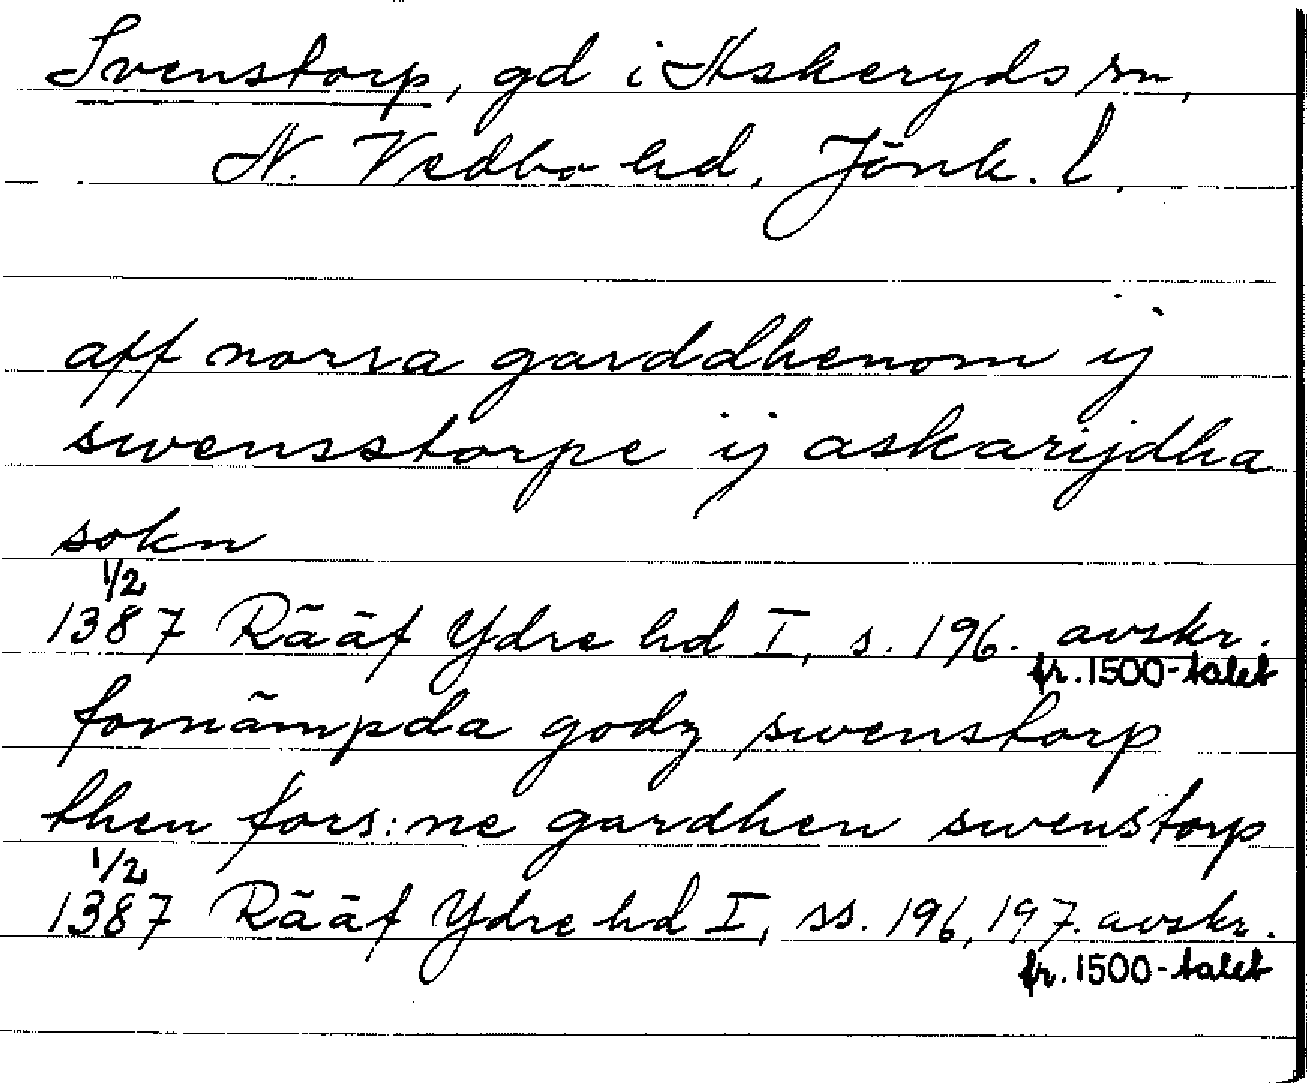 Svenstorp, gd i Askeryds sn,
N. Vedbo hd, Jönk. l.
aff norra garddhenom ij
swensstorpe ij askarijdha
sokn
1/2
1387 Rääf Ydre hd I, s. 196. avskr.
fr. 1500-talet
fornämpda godz swenstorp
then fors:ne gardhen swenstorp
1/2
1387 Rääf Ydre hd I, ss. 196, 197. avskr.
fr. 1500-talet